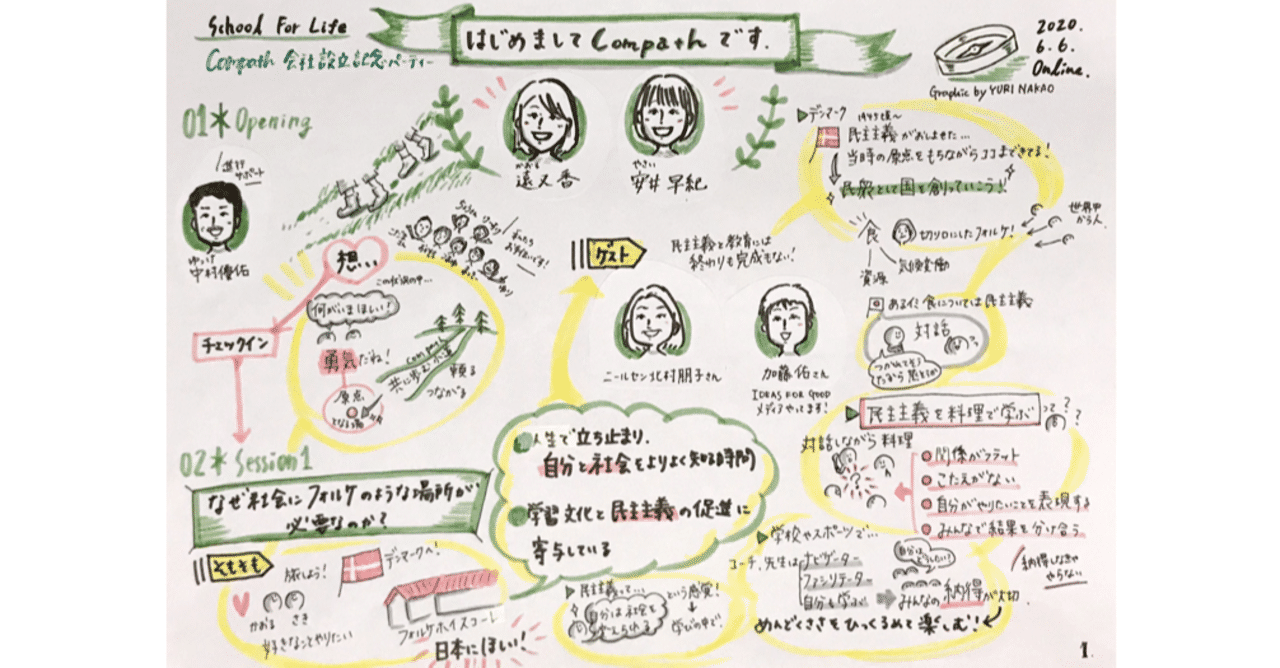 School For Life
Compath 会社設立記念パーティー
はじめまして Compathです.
2020.
6.6.
Online.
Graphic by YURI NAKAO
01*Opening
進行
サポート
ゆっけ
中村優佑
かおる
遠又香
やさい
安井早紀
想い
チェックイン
何がいまほしい!
勇気だね!
原点
となる場
compath
共に歩む
頼る
つながる
ゲスト
民主主義と教育には
終わりも完成もない!
ニールセン北村朋子さん
加藤佑さん
IDEAS FOR GOOD
メディアやってます!
デンマーク
民主主義がおしよせた…
当時の原点をもちながらココまできてる!
民衆として国を創っていこう!!
世界中
から人
食
切り口にしたフォルケ!
資源
気候変動
食については民主主義
対話
民主主義を料理で学ぶって?
対話しながら料理
関係がフラット
こたえがない
自分がやりたいことを表現する
みんなで結果を分け合う
02*Session1
なぜ社会にフォルケのような場所が
必要なのか?
そもそも
旅しよう!
デンマークへ!
かおる
さき
好きなことやりたい
フォルケホイスコーレ
日本にほしい!
人生で立ち止まり.
自分と社会をよりよく知る時間
学習文化と民主主義の促進に
寄与している
民主主義って…
自分は社会を
変えられる
という感覚!
学びの中で!
学校やスポーツで…
コーチ、先生は
ナビゲーター
ファシリテーター
自分も学ぶ
自分は
どうしたい?
みんなの納得が大切.
納得しなきゃ
やらない
めんどくささをひっくるめて楽しむ!
1.